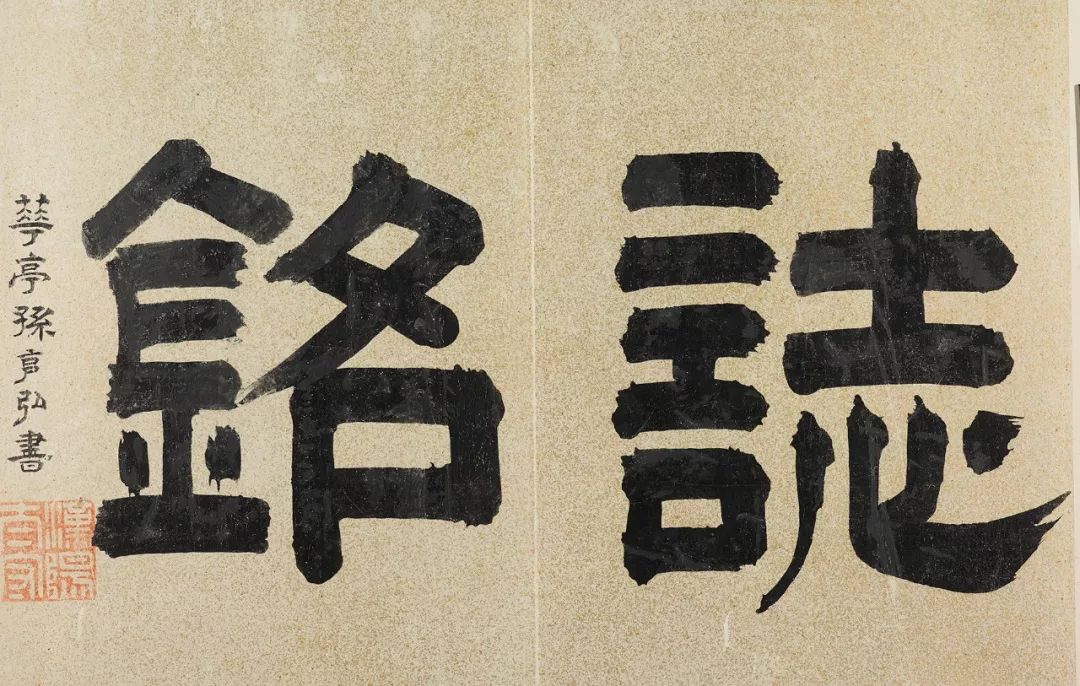 誌銘
華亭孫克弘書
漢陽